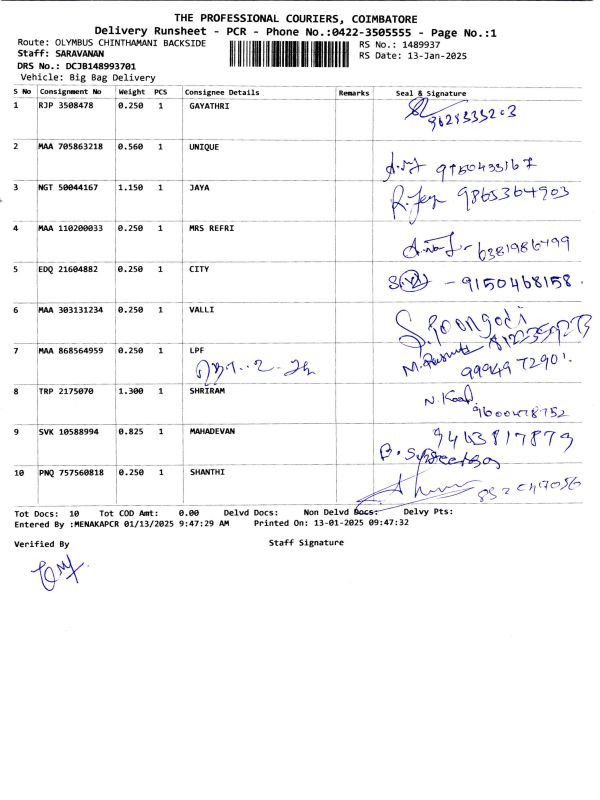 THE PROFESSIONAL COURIERS, COIMBATORE
Delivery Runsheet - PCR - Phone No.:0422-3505555 - Page No.:1
Route: OLYMBUS CHINTHAMANI BACKSIDE RS No.: 1489937
Staff: SARAVANAN RS Date: 13-Jan-2025
DRS No.: DCJB148993701
Vehicle: Big Bag Delivery
S No Consignment No Weight PCS Consignee Details Remarks Seal & Signature
1 RJP 3508478 0.250 1 GAYATHRI
2 MAA 705863218 0.560 1 UNIQUE
9150433167
3 NGT 50044167 1.150 1 JAYA 9865364903
4 MAA 110200033 0.250 1 MRS REFRI
6381986499
5 EDQ 21604882 0.250 1 CITY
- 9150468158.
6 MAA 303131234 0.250 1 VALLI
S.Poongodi
7 MAA 868564959 0.250 1 LPF
99949 72901.
8 TRP 2175070 1.300 1 SHRIRAM
9600478752
9 SVK 10588994 0.825 1 MAHADEVAN 9463817873
10 PNQ 757560818 0.250 1 SHANTHI
Tot Docs: 10 Tot COD Amt: 0.00 Delvd Docs: Non Delvd Docs: Delvy Pts:
Entered By :MENAKAPCR 01/13/2025 9:47:29 AM Printed On: 13-01-2025 09:47:32
Verified By Staff Signature